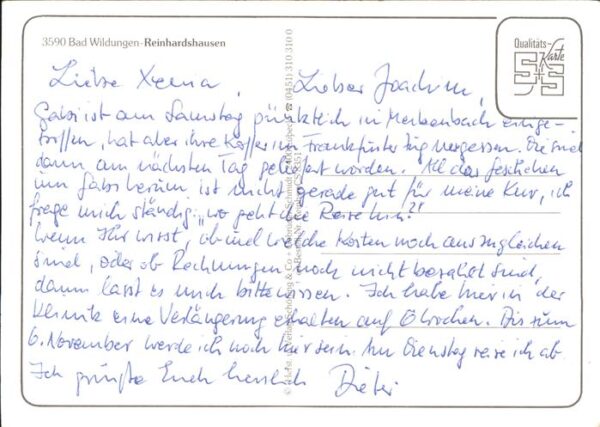 3590 Bad Wildungen-Reinhardshausen
Qualitäts-
Karte
S+S
Liebe Xenia, Lieber Joachim,
Gabi ist am Samstag pünktlich in Merkenbach einge-
troffen, hat aber ihre Koffer im Frankfurter Zug vergessen. Die sind
dann am nächsten Tag geliefert worden. All das Geschehen
um Gabi herum ist nicht gerade gut für meine Kur, ich
frage mich ständig: „wo geht die Reise hin?"
Wenn Ihr wisst, ob und welche Kosten noch auszugleichen
sind, oder ob Rechnungen noch nicht bezahlt sind,
dann lasst es mich bitte wissen. Ich habe hier in der
Klinik eine Verlängerung erhalten auf 6 Wochen. Bis zum
6. November werde ich noch hier sein. Am Dienstag reise ich ab.
Ich grüße Euch herzlich Dieter
Schöning & Co + Schmidt Lübeck ☎ (0451) 31 03 10-0